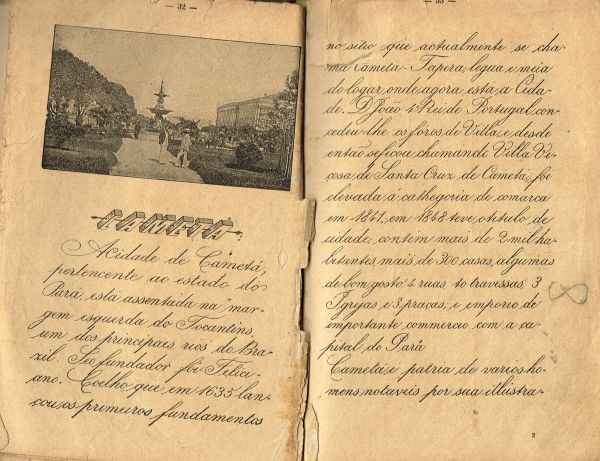 — 32 —
CAMETÁ
A cidade de Cametá,
pertencente ao estado do
Pará, está assentada na mar-
gem esquerda do Tocantins
um dos principaes rios do Bra-
zil. Seo fundador foi Felici-
ano. Coelho, que em 1635 lan-
çou os primeiros fundamentos
— 33 —
no sitio que actualmente se cha-
ma Cameta-Tapera, legua e meia
do logar onde agora está a Cida-
de. D. João 4º Rei de Portugal con-
cedeu-lhe os fóros de Villa e desde
então se ficou chamando Villa Vi-
cosa de Santa Cruz de Cametá, foi
elevada á cathegoria de comarca
em 1841, em 1848 teve o titulo de
cidade, contem mais de 2 mil ha-
bitantes mais de 300 casas, algumas
de bom gosto 4 ruas 10 travessas 3
Igrejas e 3 praças, e emporio de
importante commercio com a ca-
pital do Pará
Cametá e patria de varios ho-
mens notaveis por sua illustra-
8
3